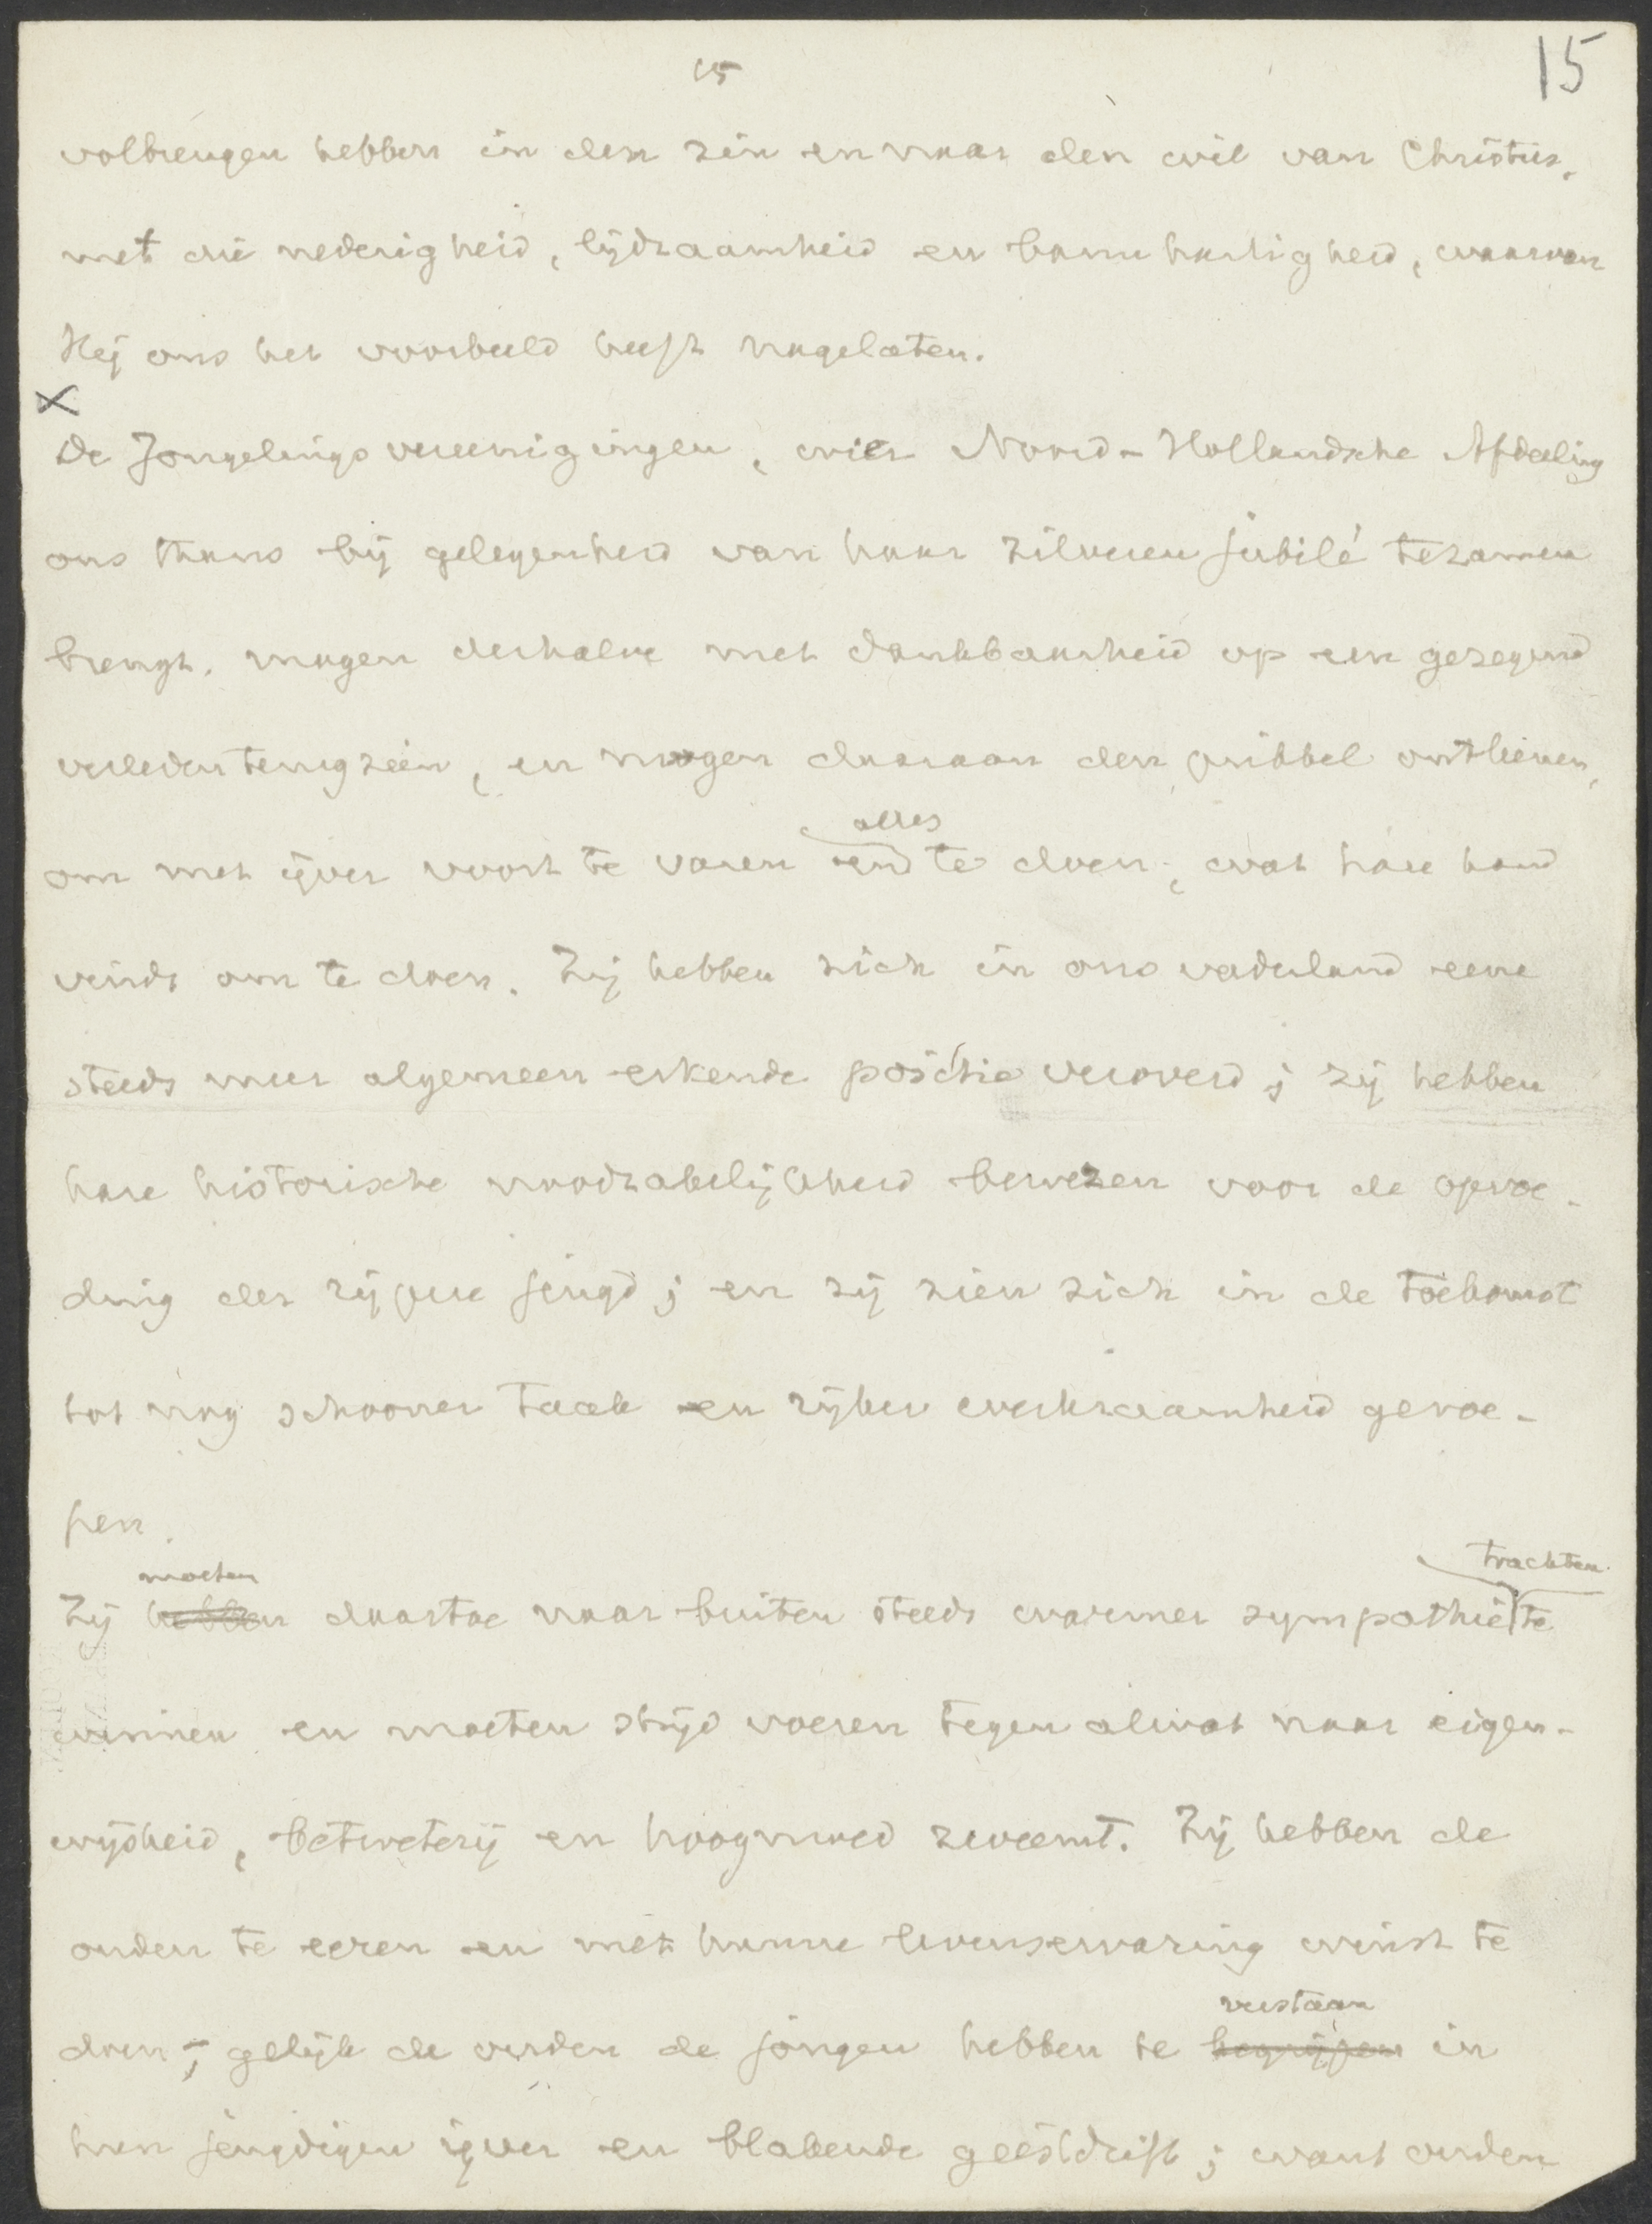 15
15
volbrengen hebben in den zin en naar den wil van Christus,
met die nederigheid, lijdzaamheid en barmhartigheid, waarvan
Hij ons het voorbeeld heeft nagelaten.
x
De Jongelingsvereenigingen, wier Noord-Hollandsche Afdeeling
ons thans bij gelegenheid van haar zilveren jubilé tezamen
brengt, mogen derhalve met dankbaarheid op een gezegend
verleden terugzien, en mogen daaraan den prikkel ontleenen,
alles
om met ijver voort te varen en te doen, wat hare hand
vindt om te doen. Zij hebben zich in ons vaderland eene
steeds meer algemeen erkende positie veroverd; zij hebben
hare historische noodzakelijkheid bewezen voor de opvoe-
ding der rijpere jeugd; en zij zien zich in de toekomst
tot nog schooner taak en rijker werkzaamheid geroe-
pen.
moeten trachten
Zij hebben daartoe naar buiten steeds warmer sympathie te
winnen en moeten strijd voeren tegen alwat naar eigen-
wijsheid, betweterij en hoogmoed zweemt. Zij hebben de
ouden te eeren en met hunne levenservaring winst te
verstaan
doen; gelijk de ouden de jongen hebben te begrijpen in
hun jeugdigen ijver en blakende geestdrift; want ouden